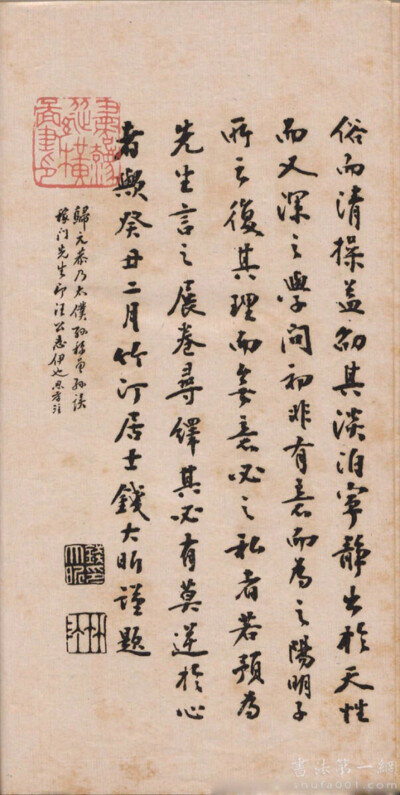 俗而清操盖其淡泊寧靜出於天性
而又深之學問初非有意而為之陽明子
所云復其理而無意必之私者若預為
先生言之展卷尋繹其必有莫逆於心
者歟癸丑二月竹汀居士錢大昕謹題
歸元恭乃太僕孫
稼门先生即汪公志伊也
錢大昕印
竹汀
書法第一網
shufa001.com